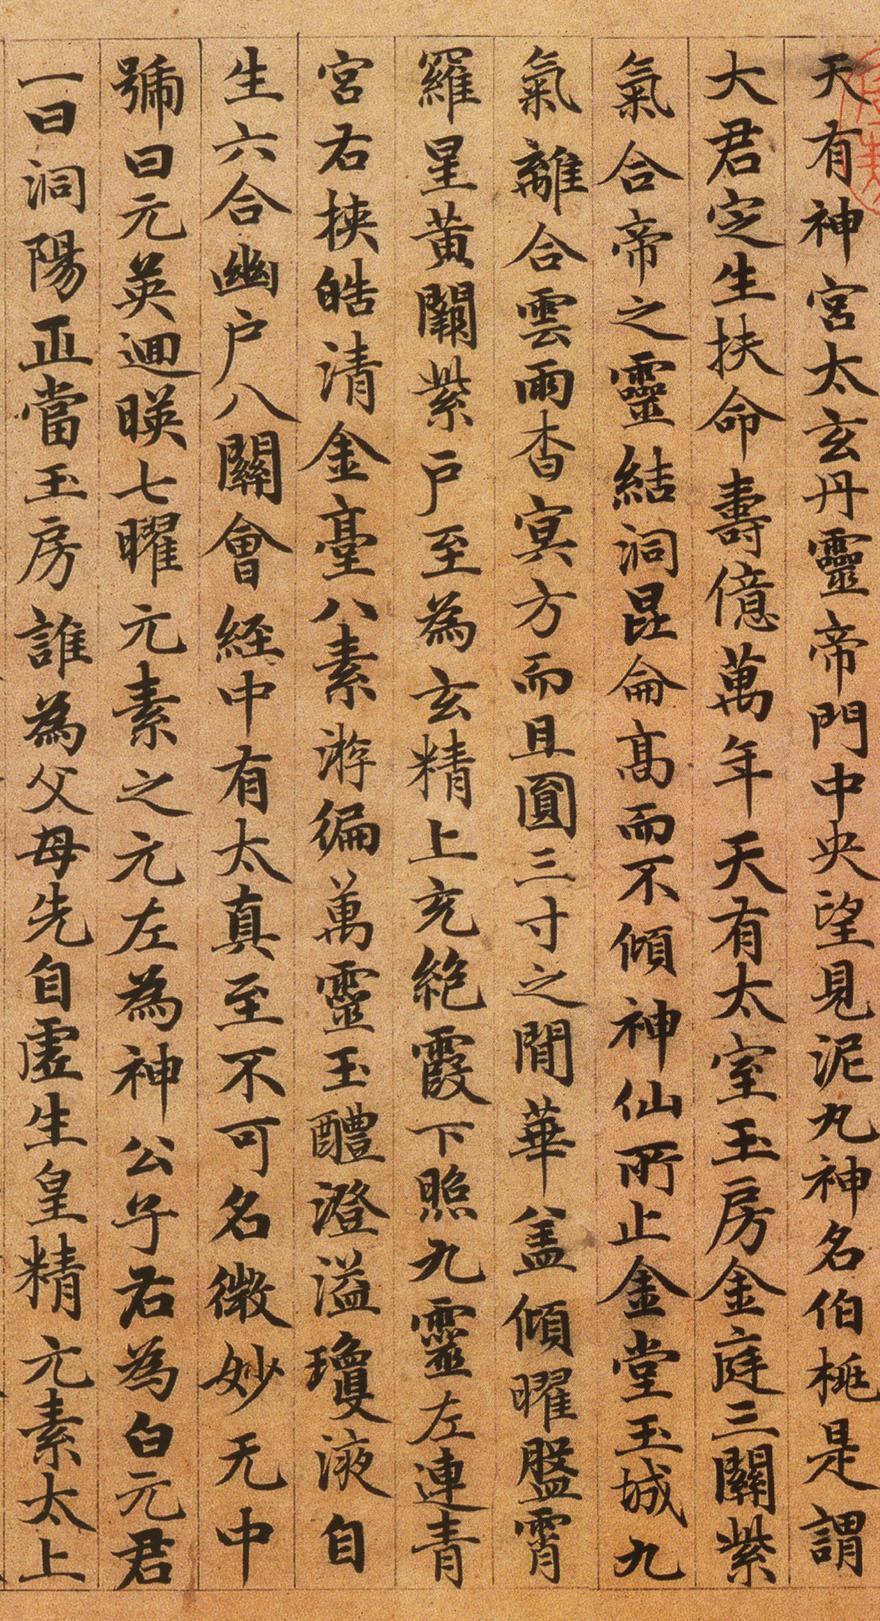 天有神宮太玄丹靈帝門中央望見泥丸神名伯桃是謂
大君定生扶命壽億萬年天有太室玉房金庭三關紫
氣合帝之靈結洞昆侖高而不傾神仙所止金堂玉城九
氣離合雲雨杳冥方而且圓三寸之閒華盖傾曜盤霄
羅星黃闕紫戶至為玄精上充絕霞下照九靈左連青
宮右挾皓清金臺八素游徧萬靈玉醴澄溢瓊液自
生六合幽戶八關會經中有太真至不可名微妙无中
號曰元英迴暎七曜元素之元左為神公子右為白元君
一曰洞陽正當玉房誰為父母先自虛生皇精元素太上